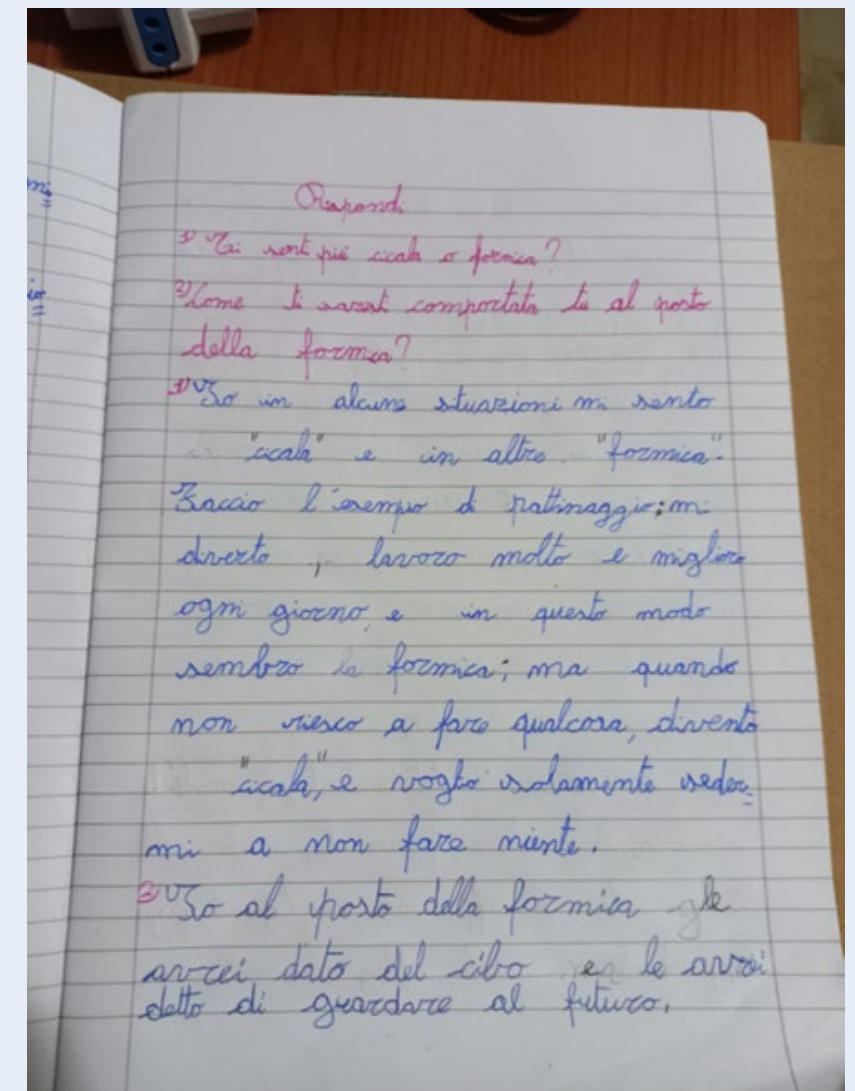 mi
io
Rispondi
1) Ti senti più cicala o formica?
2) Come ti saresti comportata tu al posto
della formica?
1) Io in alcune situazioni mi sento
"cicala" e in altre "formica".
Faccio l'esempio di pattinaggio; mi
diverto, lavoro molto e miglioro
ogni giorno e in questo modo
sembro la formica; ma quando
non riesco a fare qualcosa, divento
"cicala", e voglio solamente seder=
mi a non fare niente.
2) Io al posto della formica le
avrei dato del cibo e le avrei
detto di guardare al futuro.